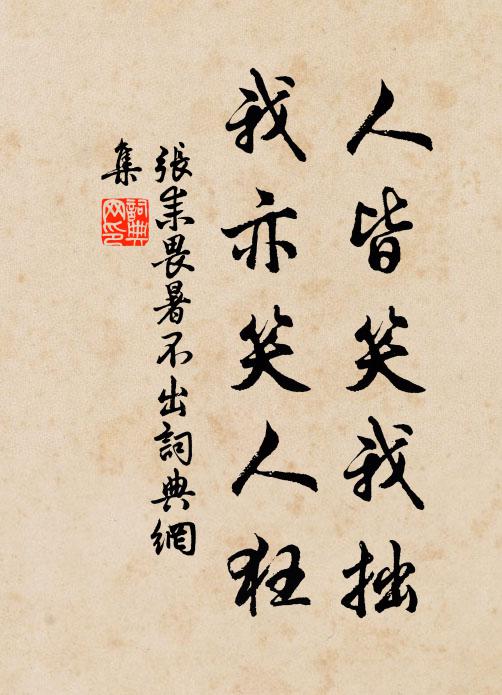 人皆笑我拙
我亦笑人狂
張耒畏暑不出詞典網
集
詞典
网印